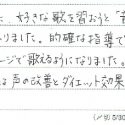 た、好きな歌を習おうと「青
りました。的確な指導で
ージで歌えるようになりました。
る声の改善とダイエット効果